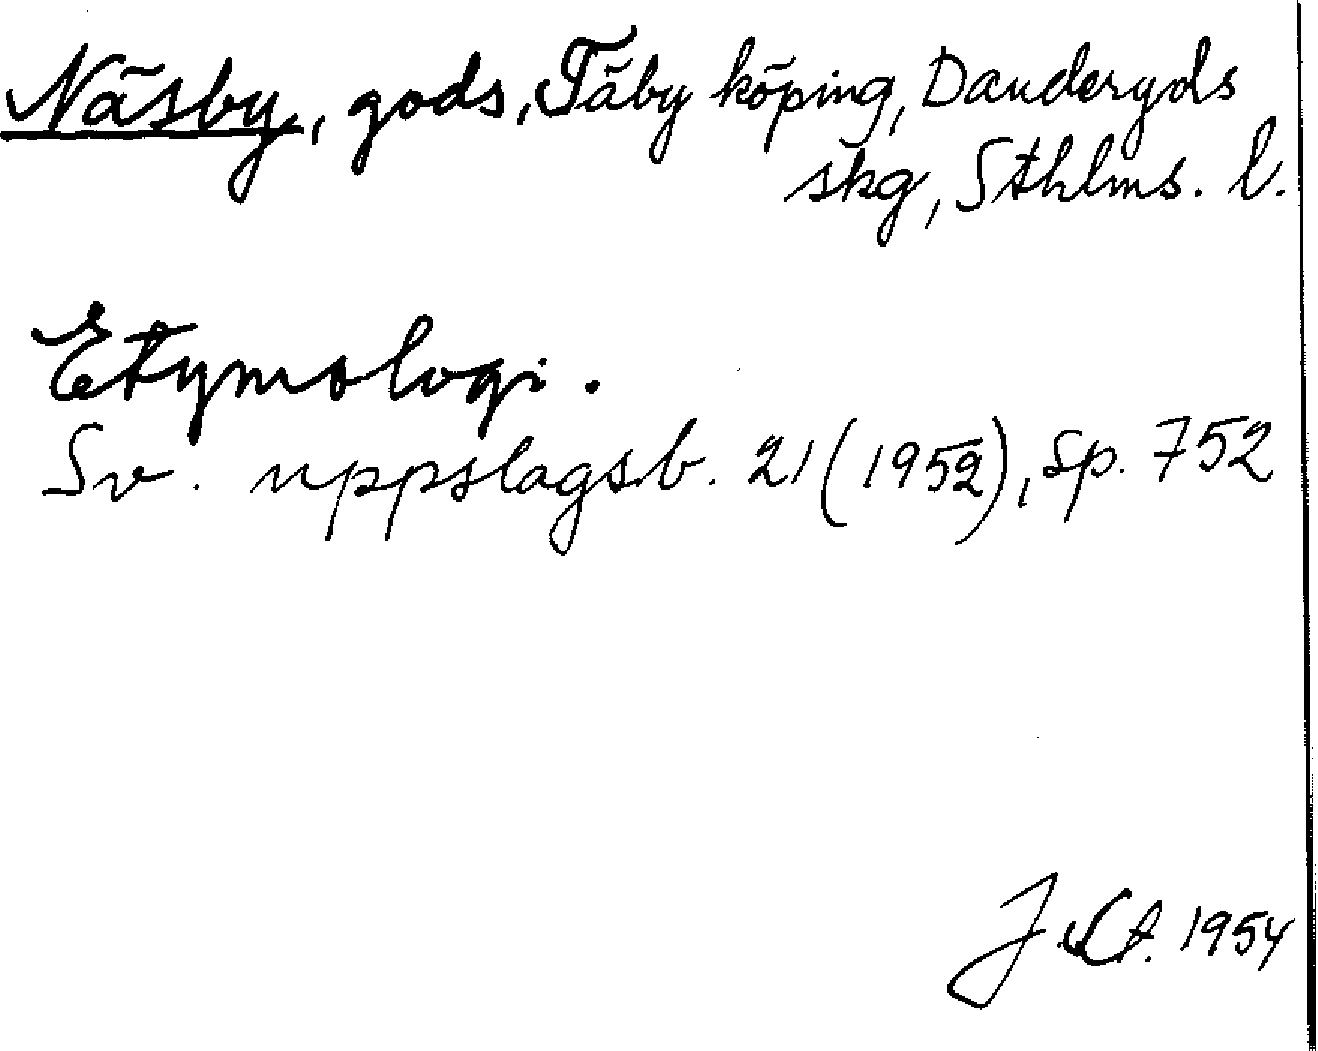 Näsby, gods, Täby köping, Danderyds
skg, Sthlms. l.
Etymologi.
Sv. uppslagsb. 21 (1952), sp. 752
1954